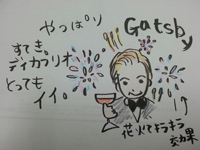 やっぱり
Gatsby
すてき。
ディカプリオ
とっても
イイ。
花火でキラキラ
効果